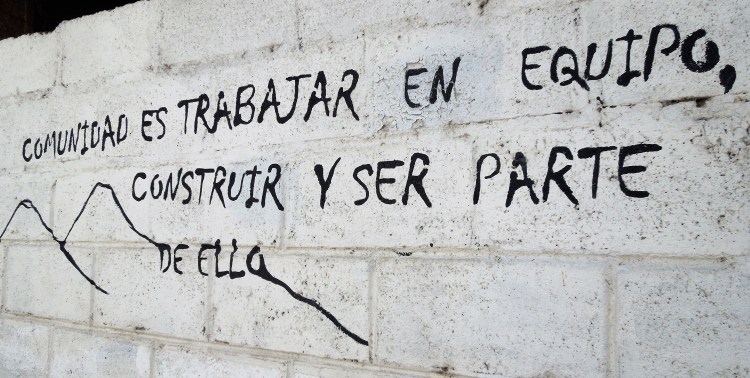 COMUNIDAD ES TRABAJAR EN EQUIPO,
CONSTRUIR Y SER PARTE
DE ELLO